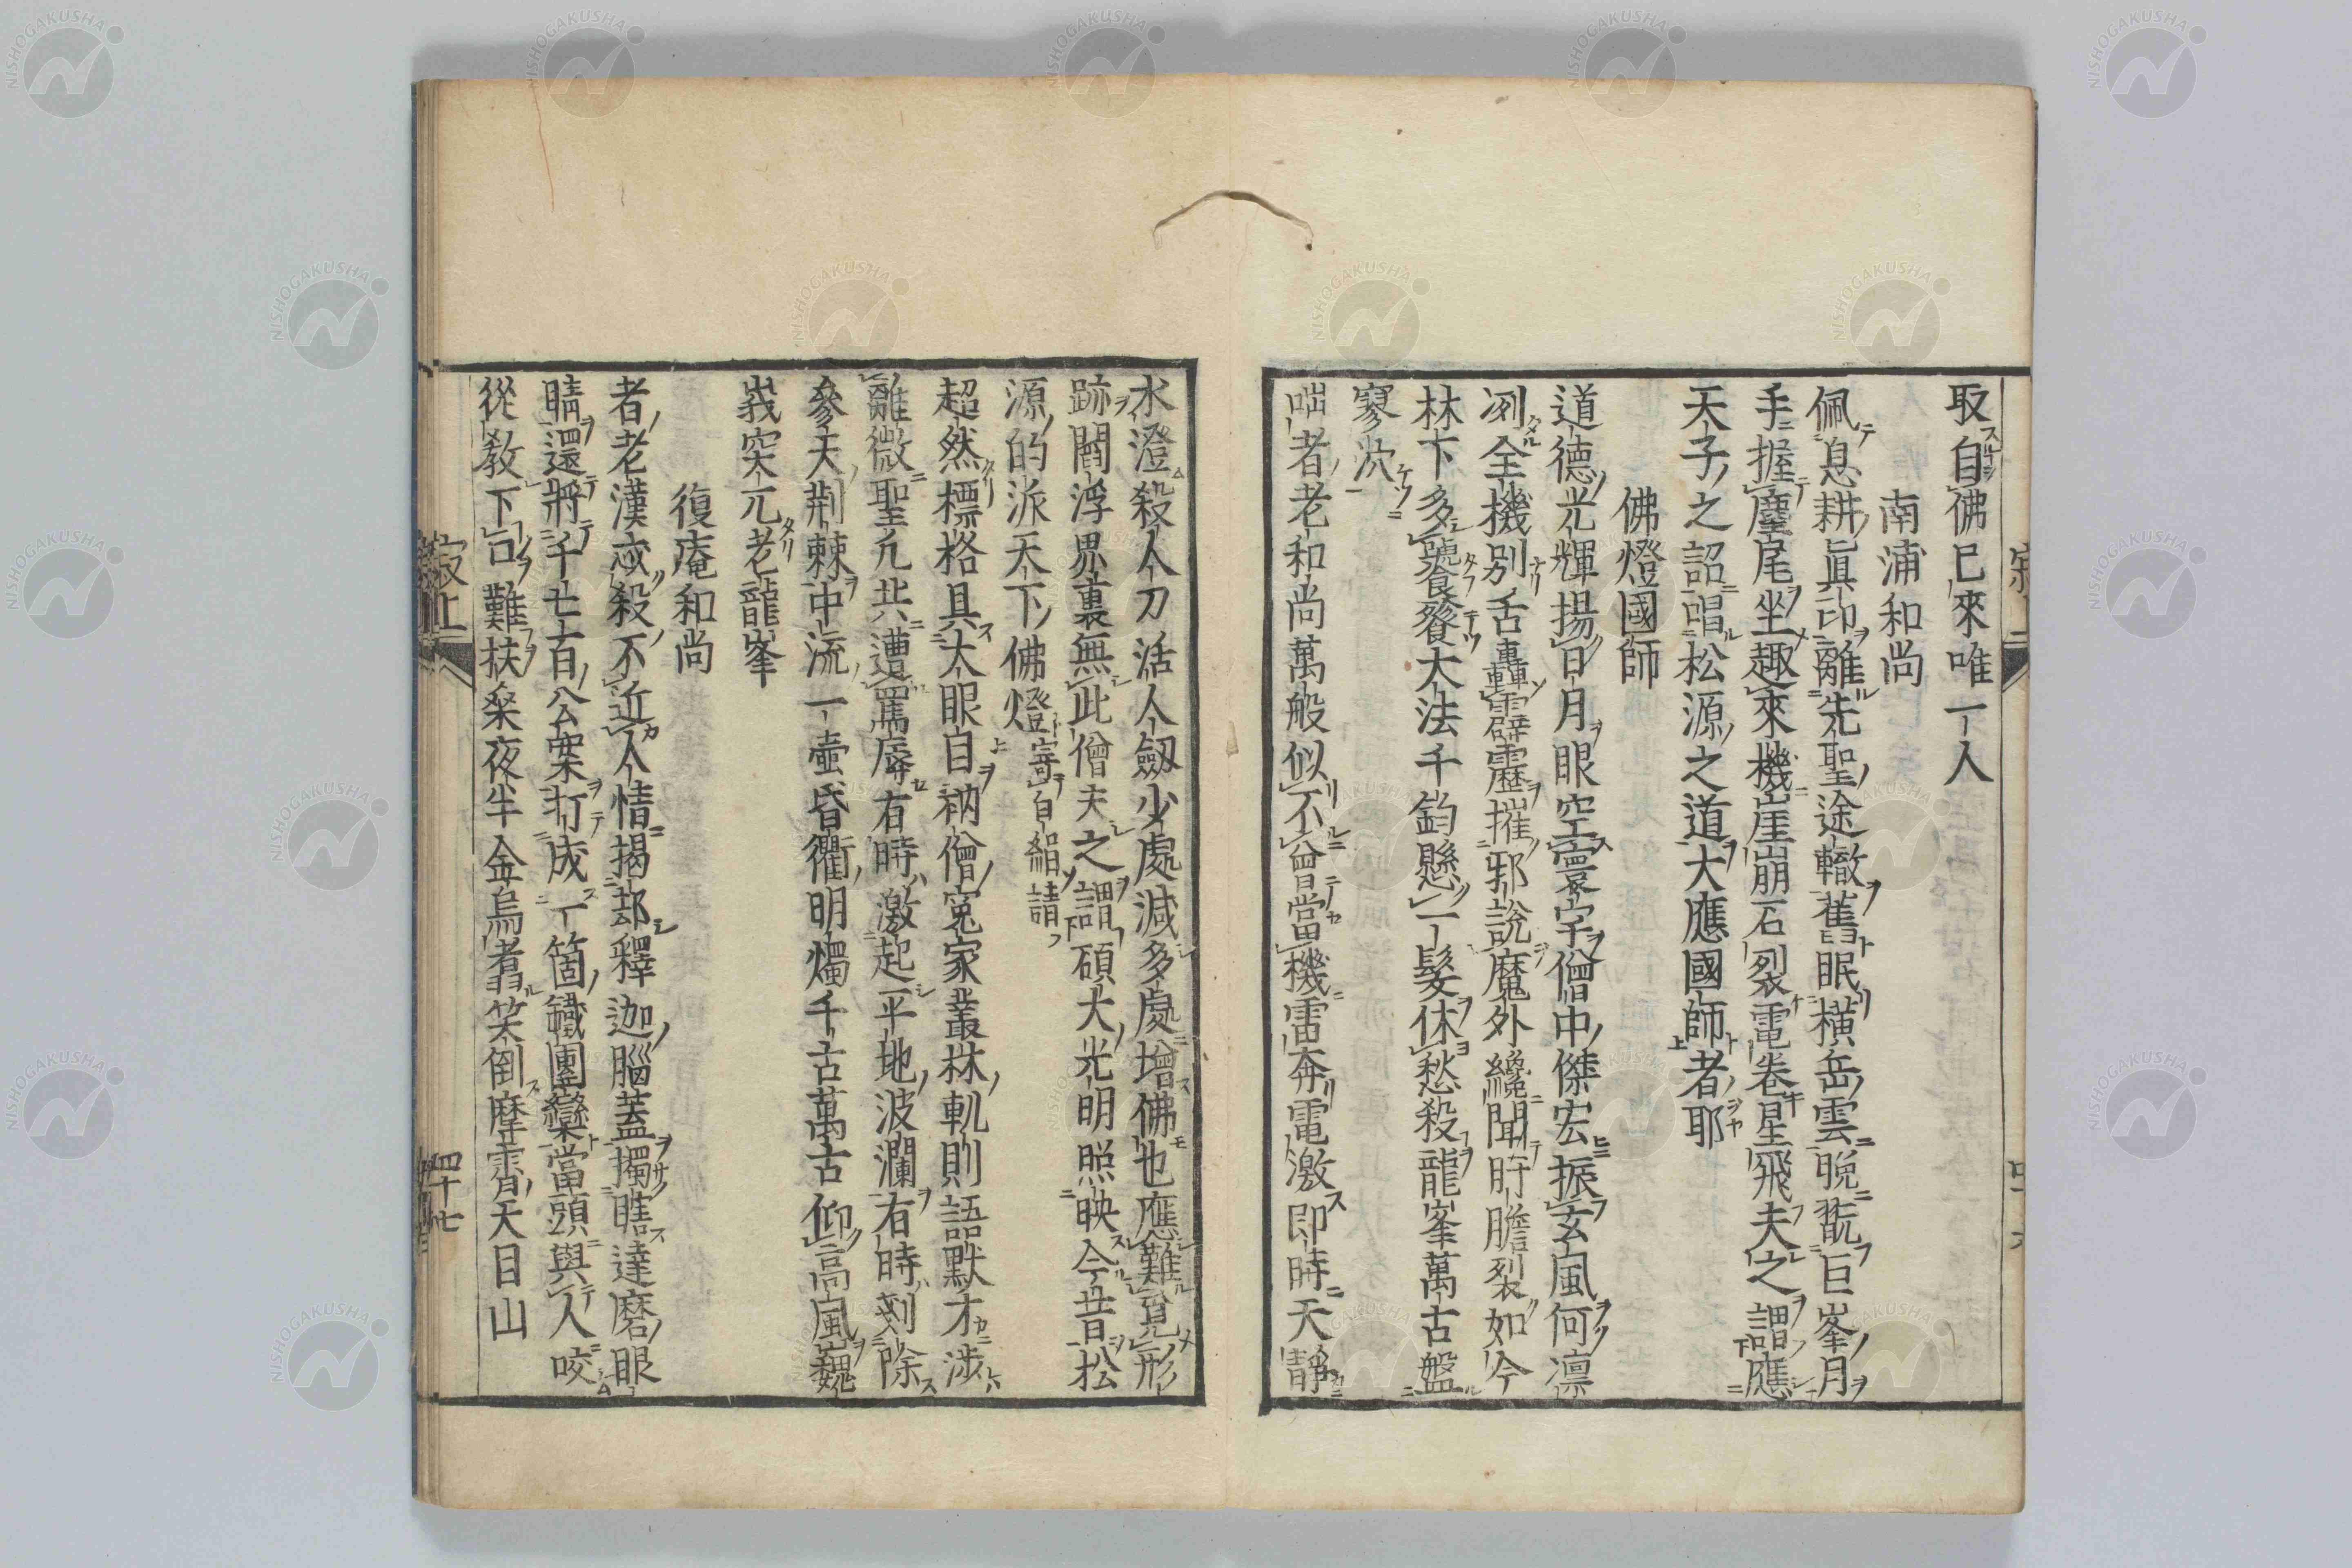 取自佛已來唯一人
南浦和尚
佩息耕眞印離先聖途轍舊眠橫岳雲晩翫巨峯月
手握麈尾坐趣來機崖崩石裂電卷星飛夫之謂應
天子之詔唱松源之道大應國師者耶
佛燈國師
道德光輝揚日月眼空寰宇僧中傑宏振玄風何凛
冽全機別舌轟霹靂摧邪說魔外纔聞肝膽裂如今
林下多饕餮大法千鈞懸一髮休愁殺龍峯萬古盤
寥泬
咄者老和尚萬般似不曾當機雷奔電激即時天靜
水澄殺人刀活人劒少處減多處增佛也應難覓形
跡閻浮界裏無此僧夫之謂碩大光明照映今昔松
源的派天下佛燈寄自紹請
超然標格具大眼自衲僧寃家叢林軌則語默才涉
離微聖凡共遭罵辱有時激起平地波瀾有時剗除
參天荊棘中流一壺昏衢明燭千古萬古仰高風巍
峩突兀老龍峯
復庵和尚
者老漢忒殺不近人情揭却釋迦腦蓋擉瞎達磨眼
睛還將千七百公案打成一箇鐵團欒當頭與人咬
從教下口難扶桒夜半金烏翥笑倒摩霄天目山
寂上
四十七